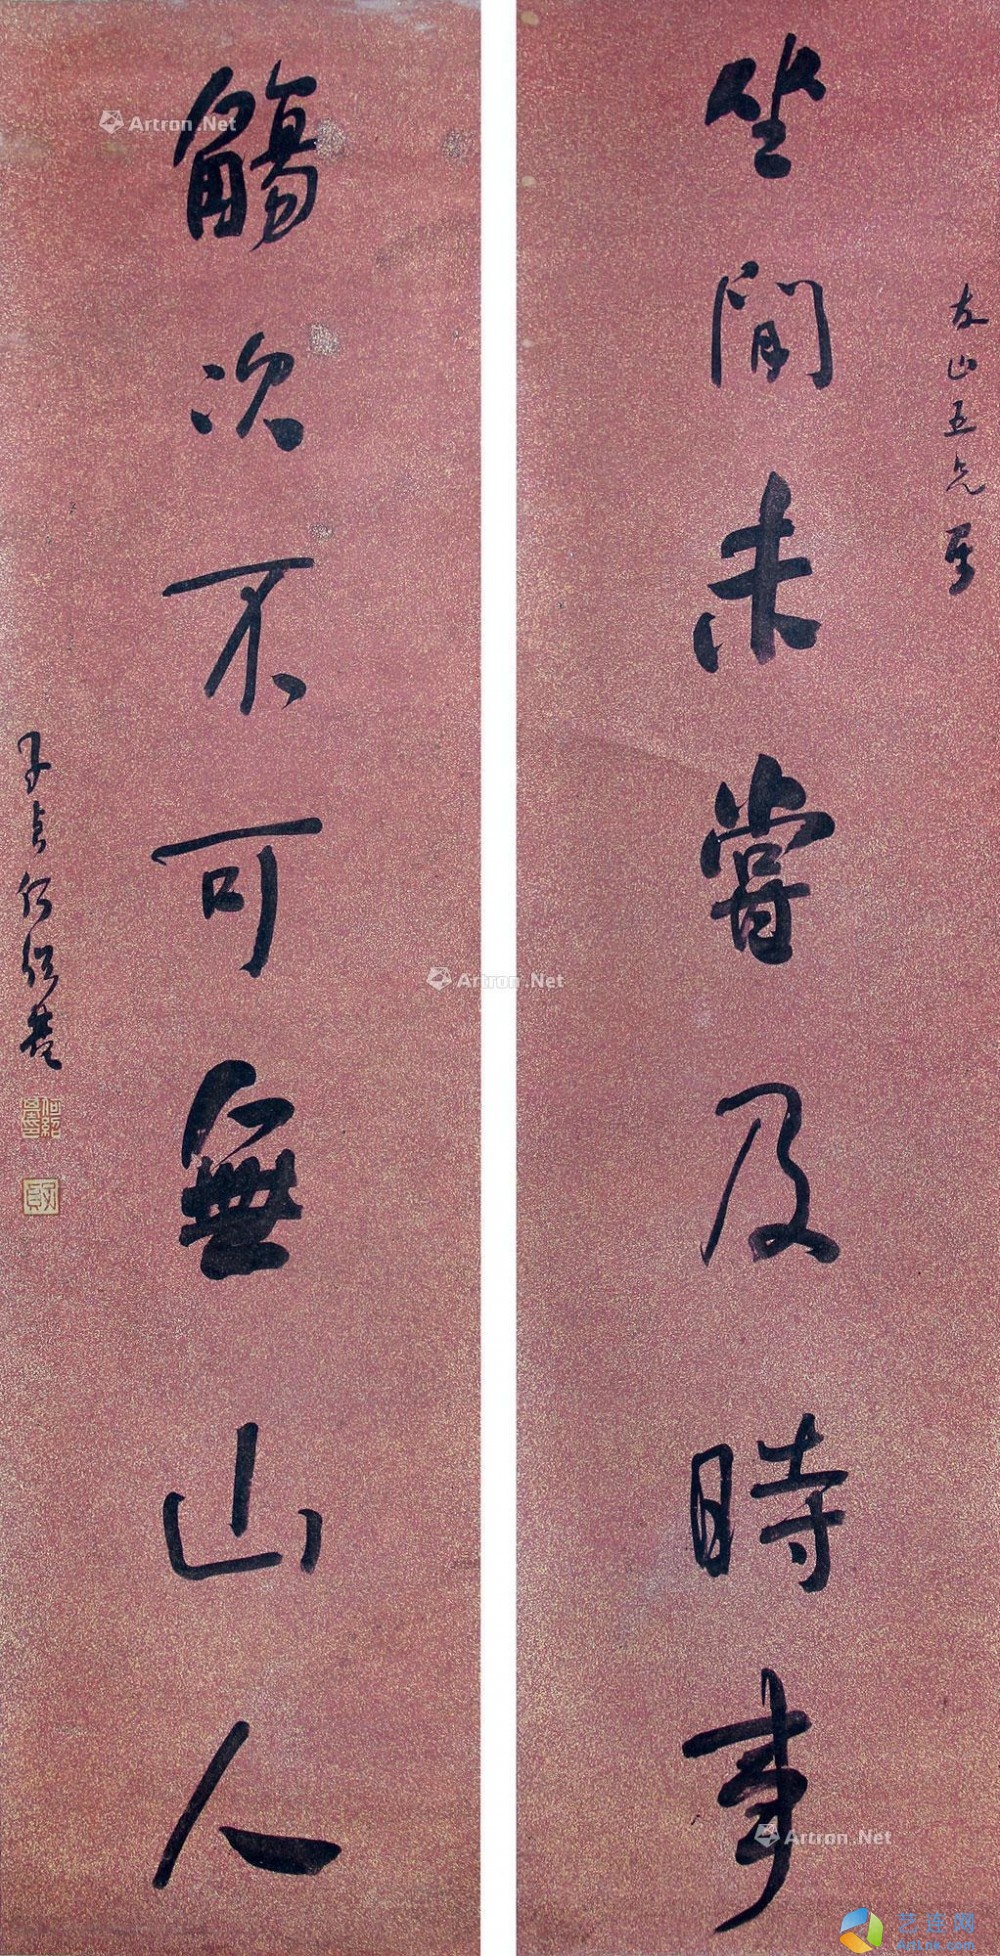 友山五兄屬
坐閒未嘗及時事
觴次不可無山人
子貞何紹基
何紹基印
子貞
Artron.Net
Artron.Net
Artron.Net
艺连网